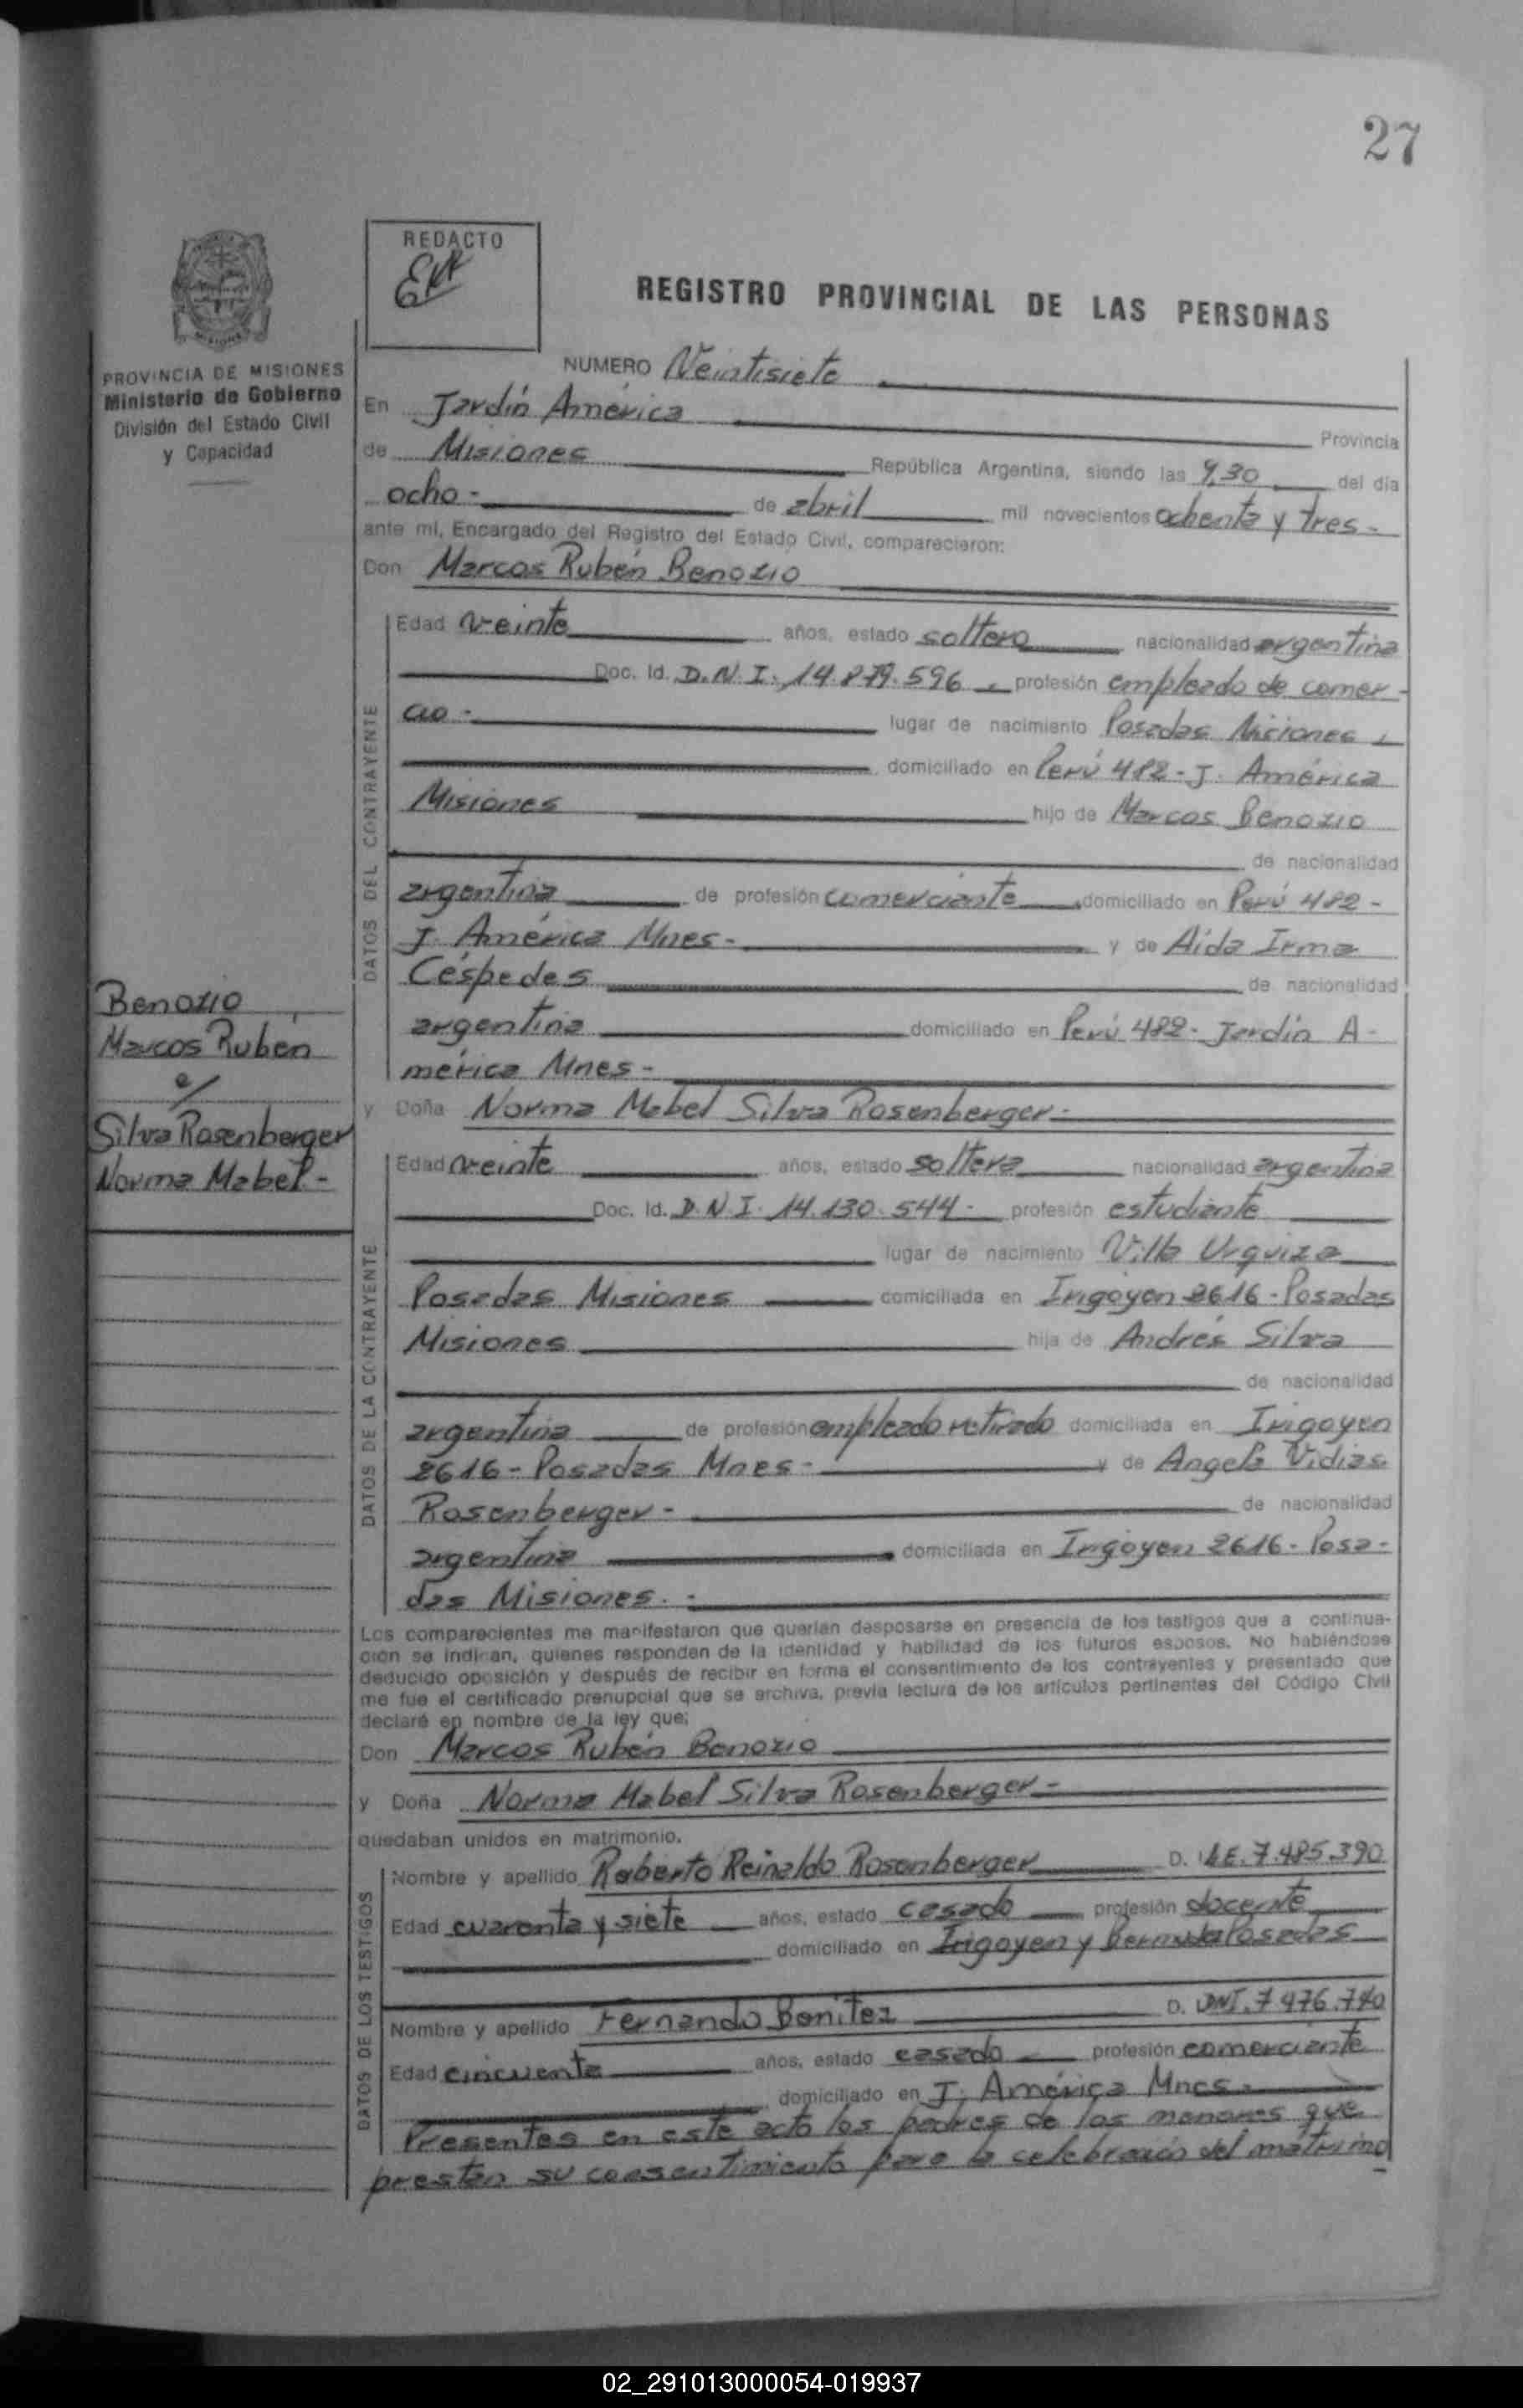 27
REDACTO
REGISTRO PROVINCIAL DE LAS PERSONAS
MISIONES
PROVINCIA DE MISIONES
Ministerio de Gobierno
División del Estado Civil
y Capacidad
NUMERO Veintisiete
En Jardín América Provincia
de Misiones República Argentina, siendo las 9,30 del día
ocho - de abril mil novecientos ochenta y tres -
ante mí, Encargado del Registro del Estado Civil, comparecieron:
Don Marcos Rubén Benozio
DATOS DEL CONTRAYENTE
Edad veinte años, estado soltero nacionalidad argentina
Doc. Id. D.N.I. 14.879.596 - profesión empleado de comer-
cio - lugar de nacimiento Posadas Misiones -
domiciliado en Perú 482 - J. América
Misiones hijo de Marcos Benozio
de nacionalidad
argentina de profesión comerciante domiciliado en Perú 482 -
J. América Mnes - y de Aida Irma
Céspedes de nacionalidad
argentina domiciliado en Perú 482 - Jardín A-
mérica Mnes -
Benozio
Marcos Rubén
c/
Silva Rosenberger
Norma Mabel -
y Doña Norma Mabel Silva Rosenberger -
DATOS DE LA CONTRAYENTE
Edad veinte años, estado soltera nacionalidad argentina
Doc. Id. D.N.I. 14.130.544 - profesión estudiante
lugar de nacimiento Villa Urquiza
Posadas Misiones comiciliada en Irigoyen 2616 - Posadas
Misiones hija de Andrés Silva
de nacionalidad
argentina de profesión empleado retirado domiciliada en Irigoyen
2616 - Posadas Mnes - y de Angela Vidias
Rosenberger - de nacionalidad
argentina domiciliada en Irigoyen 2616 - Posa-
das Misiones. -
Los comparecientes me manifestaron que querían desposarse en presencia de los testigos que a continua-
ción se indican, quienes responden de la identidad y habilidad de los futuros esposos. No habiéndose
deducido oposición y después de recibir en forma el consentimiento de los contrayentes y presentado que
me fue el certificado prenupcial que se archiva, previa lectura de los artículos pertinentes del Código Civil
declaré en nombre de la ley que:
Don Marcos Rubén Benozio
y Doña Norma Mabel Silva Rosenberger -
quedaban unidos en matrimonio.
DATOS DE LOS TESTIGOS
Nombre y apellido Roberto Reinaldo Rosenberger D. I LE. 7.485.390
Edad cuarenta y siete años, estado casado profesión docente
domiciliado en Irigoyen y Posadas
Nombre y apellido Fernando Benitez D. DNI. 7 476.740
Edad cincuenta años, estado casado profesión comerciante
domiciliado en J. América Mnes -
Presentes en este acto los padres de los menores que
prestan su consentimiento para la celebración del matrimo
02_291013000054-019937